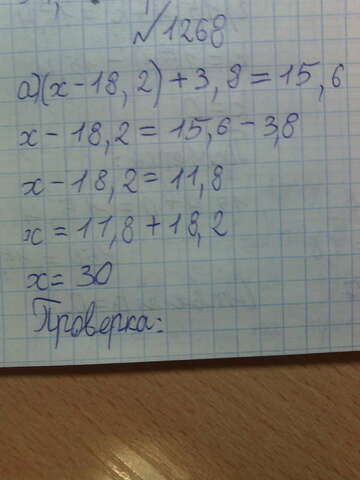 №1268
а)(x-18,2)+3,8=15,6
x-18,2=15,6-3,8
x-18,2=11,8
x=11,8+18,2
x=30
Проверка: